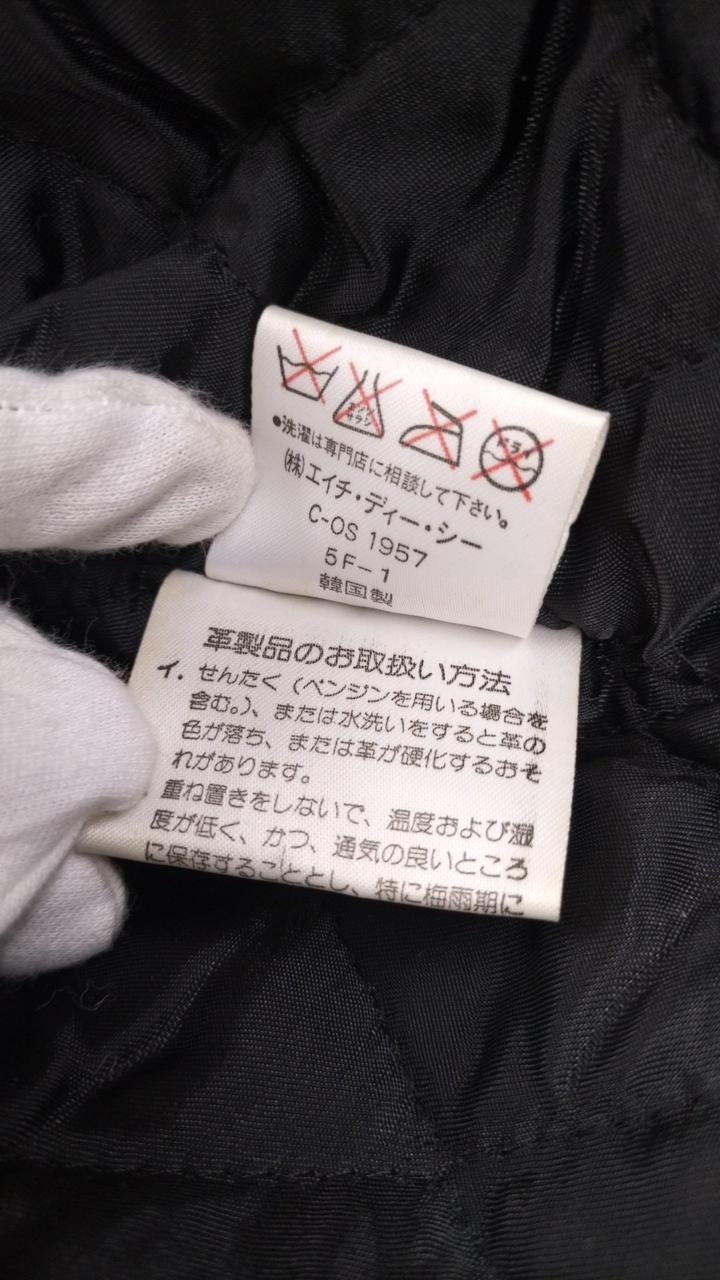 エンソ
サラシ
ドライ
●洗濯は専門店に相談して下さい。
(株)エイチ・ディー・シー
C-OS 1957
5F-1
韓国製
革製品のお取扱い方法
イ. せんたく（ベンジンを用いる場合を
含む。）、または水洗いをすると革の
色が落ち、または革が硬化するおそ
れがあります。
重ね置きをしないで、温度および湿
度が低く、かつ、通気の良いところ
に保存することとし、特に梅雨期に